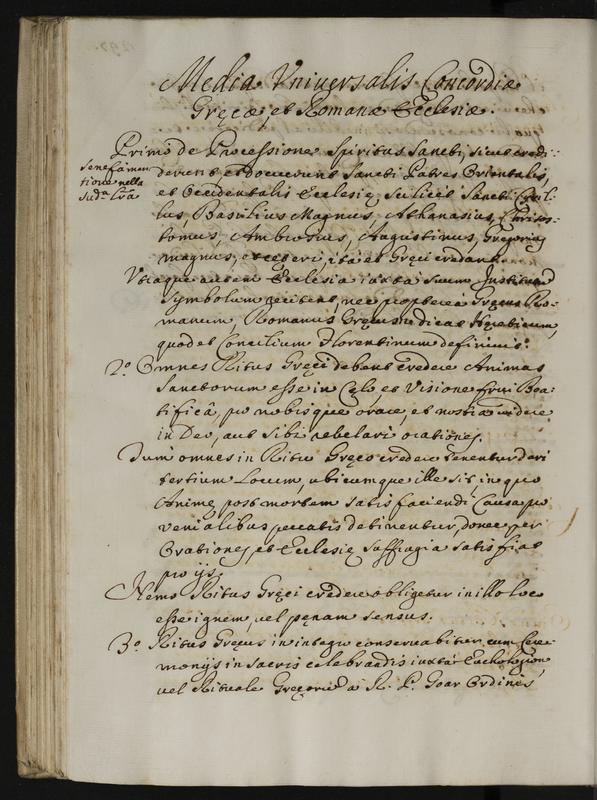 Media Vniversalis Concordiæ
Græcæ, et Romanæ Ecclesiæ.
Primo de Processione Spiritus Sancti, sicut credi-
derunt et docuerunt Sancti Patres Orientalis,
Se ne fà men-
tione nella
sud.a Lra
et Occidentalis Ecclesię, scilicet Sancti Cyril-
lus, Basilius Magnus, Athanasius, Chrisos-
tomus, Ambrosius, Augustinus, Gregorius
magnus, et ceteri, ita et Gręci credant.
Vtraque autem Ecclesia iuxta suum
Symbolum recitent, nec propterea Gręcus Ro-
manum, Romanus Gręcum dicat Hęreticum,
quod et Concilium Florentinum definivit.
2.o Omnes Ritus Gręci debent credere Animas
Sanctorum esse in Cęlo, et Visione frui Bea-
tificâ, pro nobisque orare, et nostra videre
in Deo, aut sibi rebelari orationes.
Tum omnes in Ritu Gręco credere tenentur dari
tertium Locum, ubicumque ille sit, in quo
Animę post mortem satisfaciendi Causa pro
venialibus peccatis detinentur, donec per
Orationes, et Ecclesię suffragia satisfiat
pro ijs.
Nemo Ritus Gręci credere obligetur in illo loco
esse ignem, vel pęnam sensus.
3.o Ritus Gręcus in integro conservabitur cum Cere-
monijs in sacris celebrandis iuxta Euchologion,
vel Rituale Gręcorum a R. P. Goar Ordinis